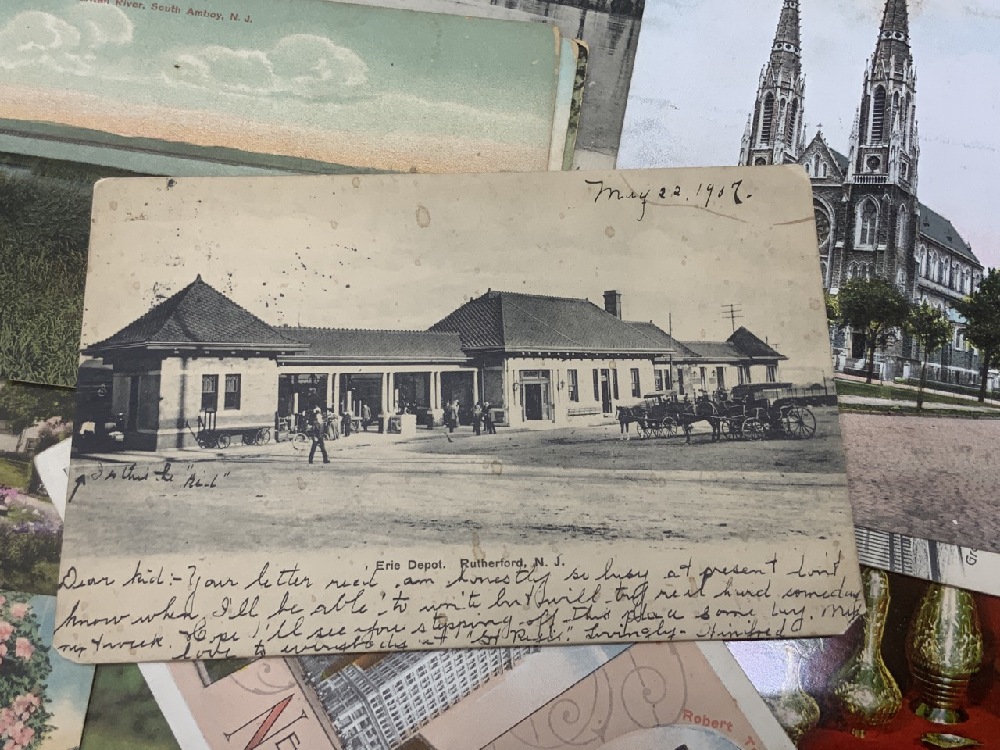 River, South Amboy, N. J.
May 22, 1907.
Is this the "Kid"
Erie Depot. Rutherford, N. J.
Dear Kid:- Your letter rec'd. am honestly so busy at present don't
know when I'll be able to write but will try real hard someday
next week. Hope I'll see you stepping off this place some
love to everybody at Lovingly- Winifred
Ne
Robert